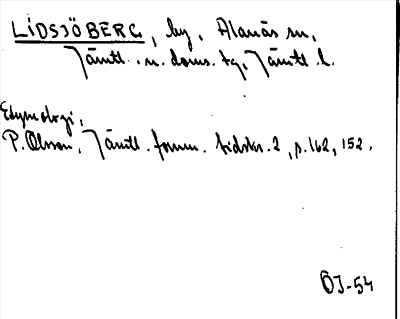 LIDSJÖBERG, by, Alanäs sn,
Jämtl. n. doms. tg, Jämtl. l.
Etymologi,
P. Olsson, Jämtl. fornm. tidskr. 2, p. 162, 152.
ÖJ-54